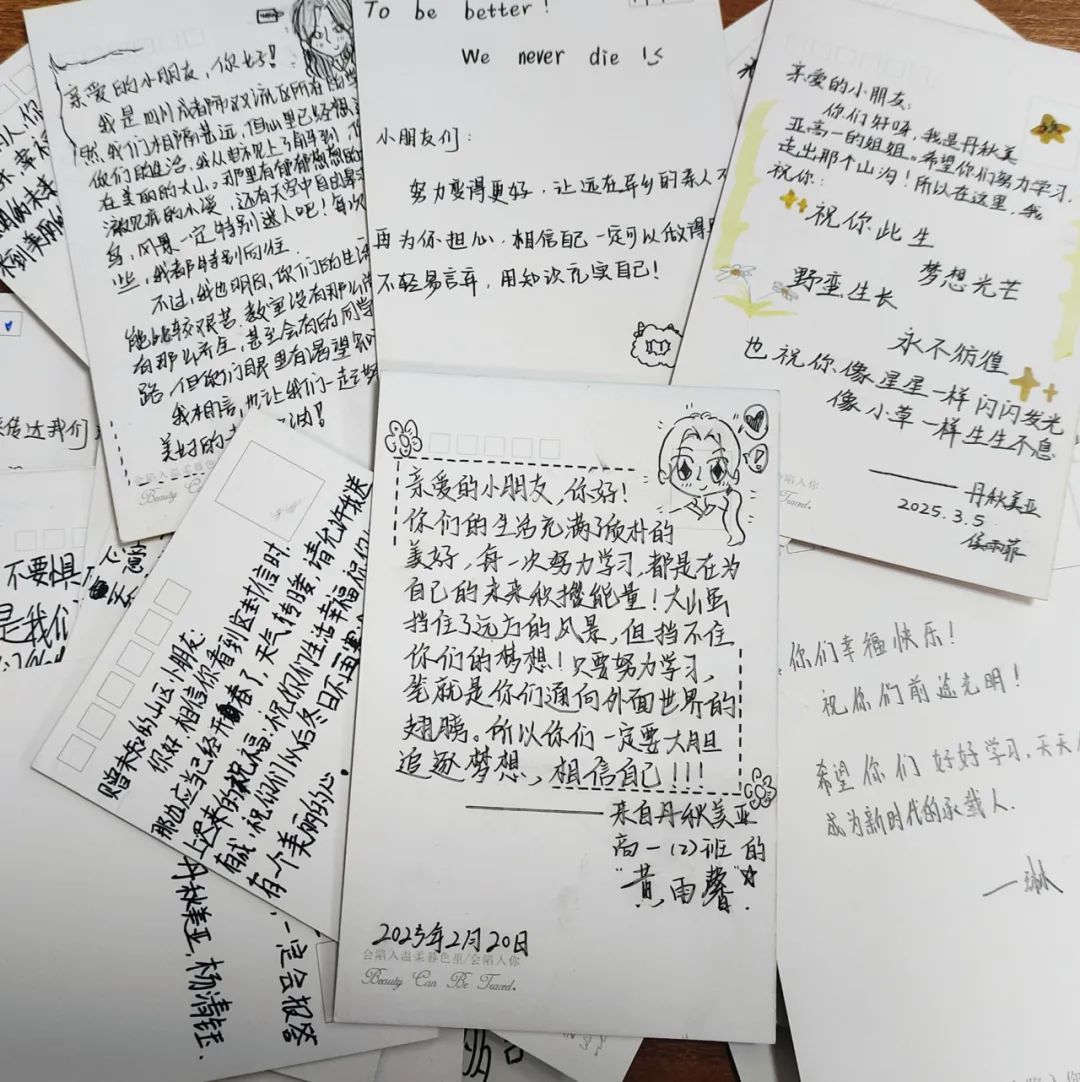 亲爱的小朋友，你好！
你们的生活充满了质朴的
美好，每一次努力学习，都是在为
自己的未来积攒能量！大山虽
挡住了远方的风景，但挡不住
你们的梦想！只要努力学习，
笔就是你们通向外面世界的
翅膀。所以你们一定要大胆
追逐梦想，相信自己！！！
来自丹秋美亚
高一（2）班的
"黄雨馨"
2025年2月20日
会陷入温柔暮色里/会陷入你
Beauty Can Be Traced.
To be better！
We never die
小朋友们：
努力变得更好，让远在异乡的亲人不
再为你担心，相信自己一定可以做得
不轻易言弃，用知识充实自己！
亲爱的小朋友：
你们好呀，我是丹秋美
亚高一的姐姐。希望你们努力学习，
走出那个山沟！所以在这里，我
祝你：
祝你此生
梦想光芒
野蛮生长
永不彷徨
也祝你像星星一样闪闪发光
像小草一样生生不息
丹秋美亚
2025.3.5
侯雨菲
会陷入你
Traced.
亲爱的小朋友，你好！
我是四川成都市双流区所在的
然，我们相隔甚远，但心里已经想
你们的生活，我从电视上了解到，
在美丽的大山。那里有郁郁葱葱的
清澈见底的小溪，还有天空中自由
鸟，风景一定特别迷人吧！每次
些，我都特别向往.
不过，我也明白，你们的生活
能比较艰苦.教室没有那么
有那么齐全，甚至会有的同学
路，但你们眼里有渴望
我相信，也让我们一起
美好的
会陷入温柔暮色
Beauty Ca
赠未知的山区小朋友：
你好，相信你看到这封信时，
那边应当已经开春了，天气转暖，请允许我送
上迟来的祝福：祝你们生活幸福
有一个美丽的心.
丹秋美亚，杨清钰.
一定会报答
你们幸福快乐！
祝你们前途光明！
希望你们好好学习，天天
成为新时代的承载人.
一琳
不要惧
是我们
传达我们